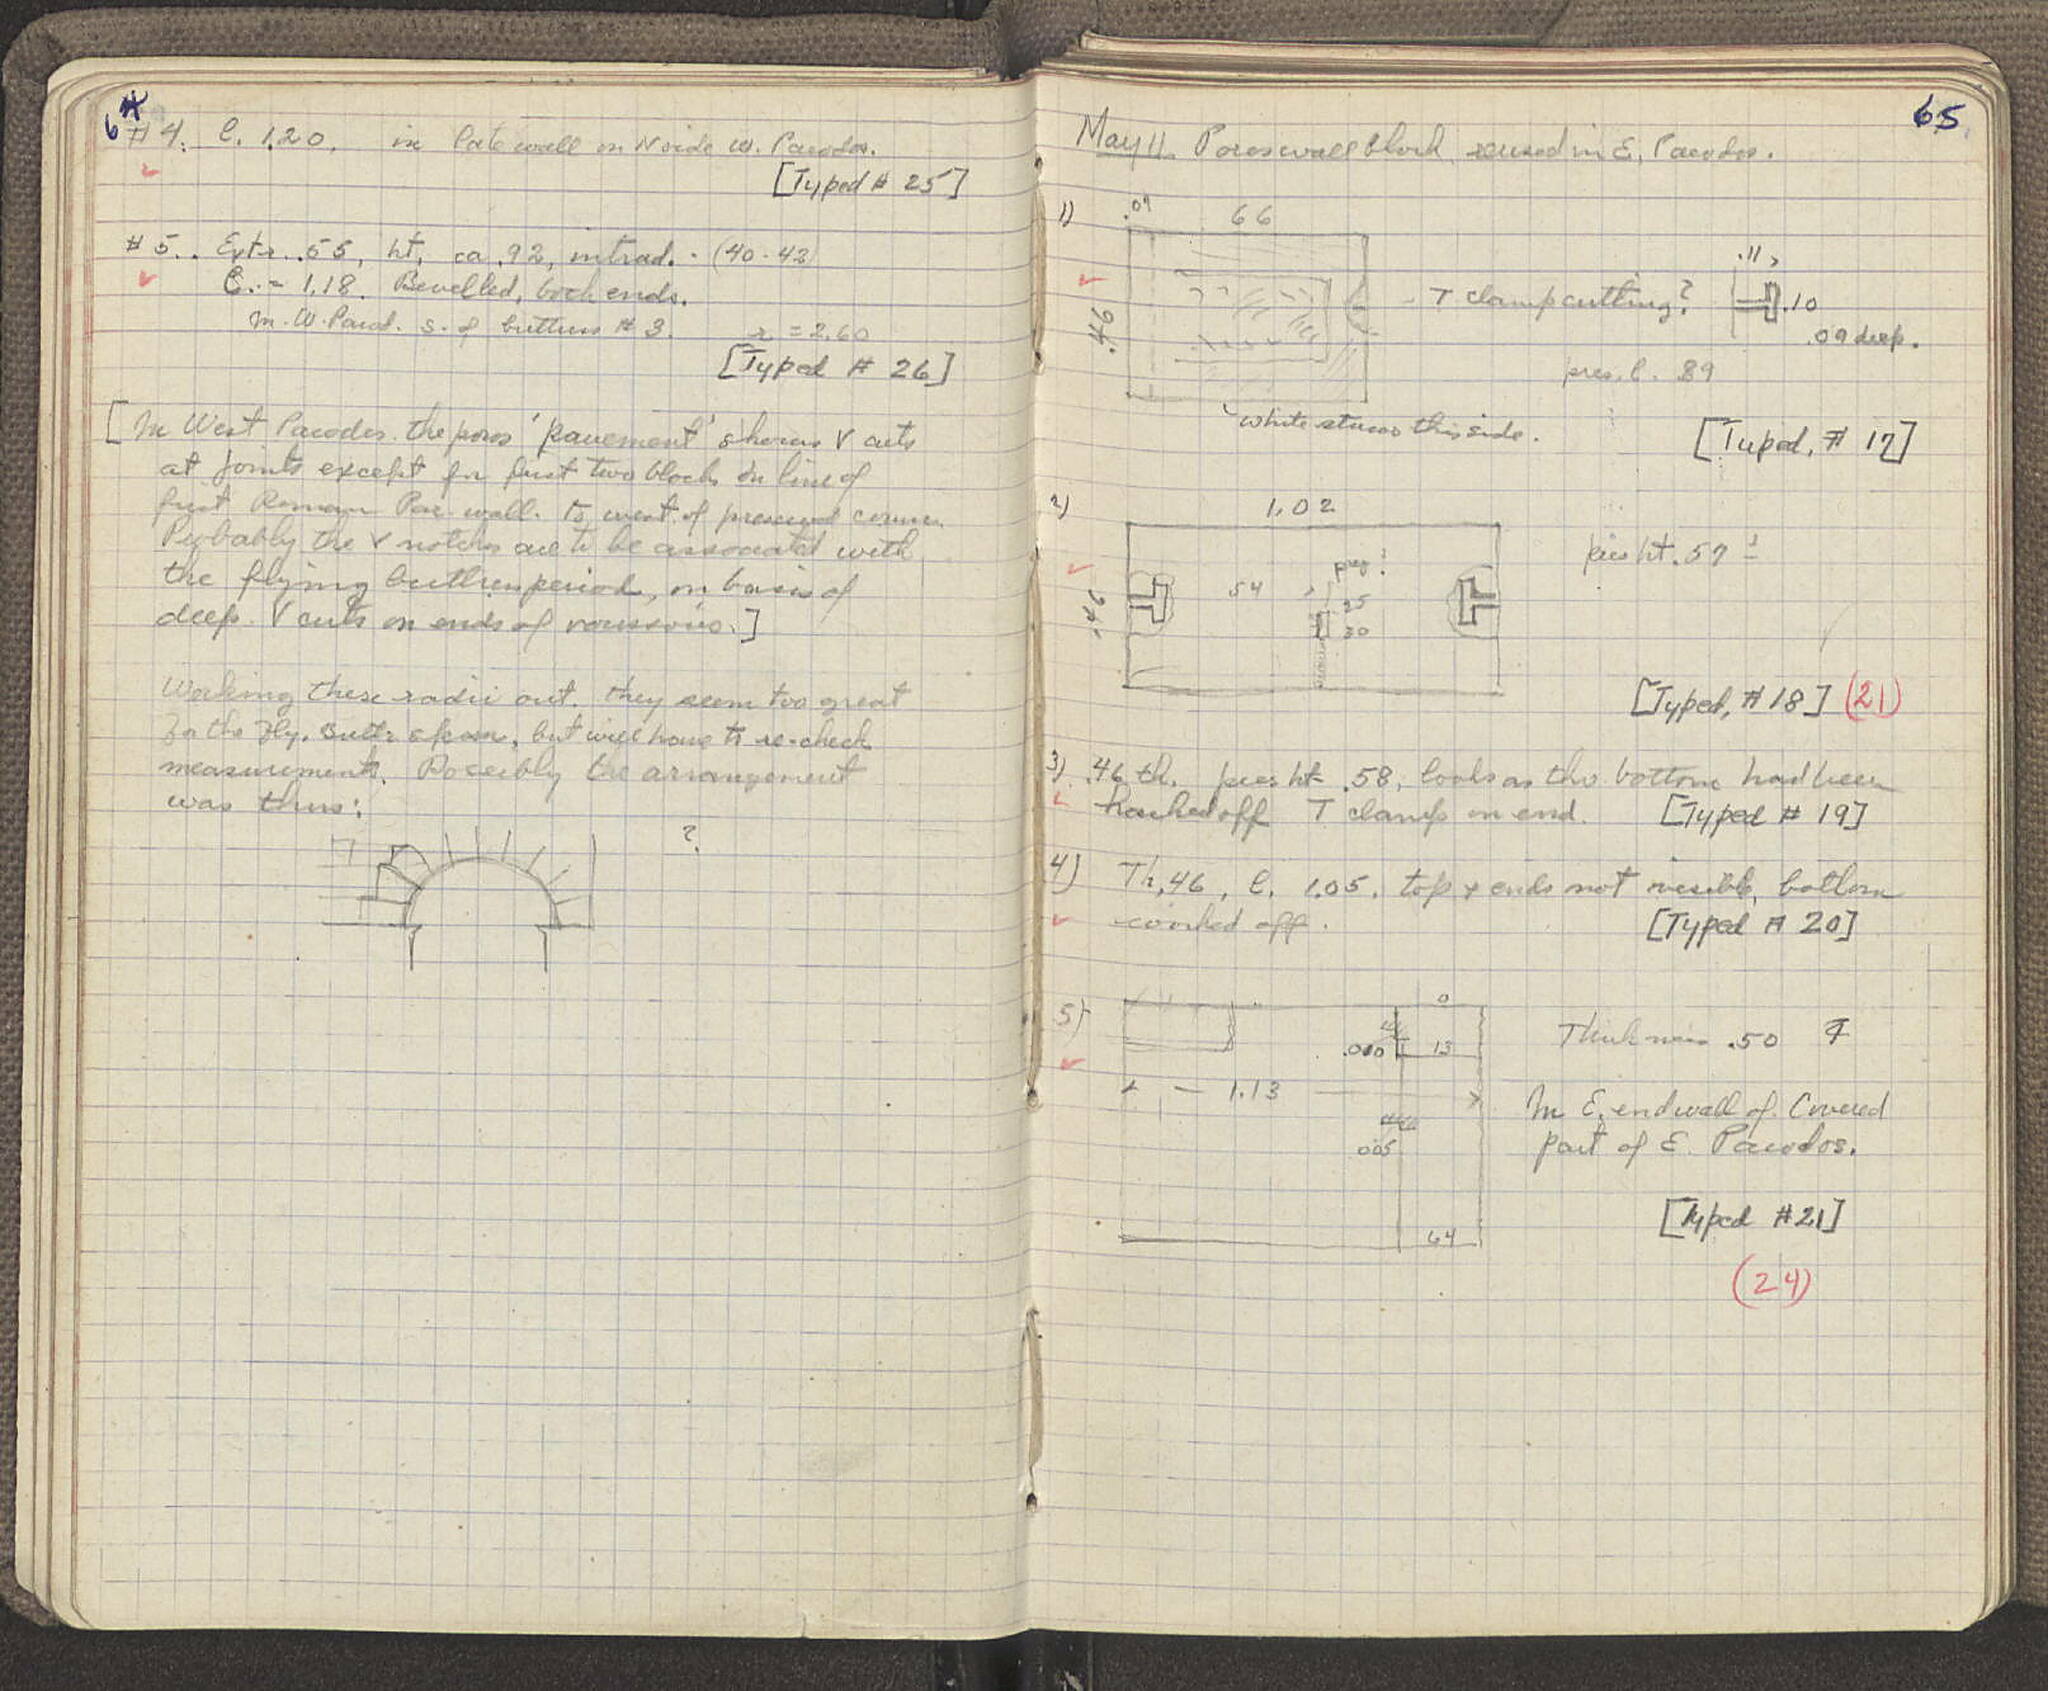 64
# 4. l. 1.20, in late wall on N side W. Parodos.
[Typed # 25]
# 5. Extr. .55, ht. ca .92, intrad. (40-42)
l. = 1.18. Bevelled, both ends.
In W. Parod. s. of buttress # 3. r = 2.60
[Typed # 26]
[In West Parodos the poros 'pavement' shows V cuts
at joints except for first two blocks in line of
first Roman Par. wall to west of preserved corner.
Probably the V notches are to be associated with
the flying buttress period, on basis of
deep V cuts on ends of voussoirs.]
Working these radii out, they seem too great
for the Fly. Buttr. span, but will have to re-check
measurements. Possibly the arrangement
was thus:
?
65
May 11. Poros wall block reused in E. Parodos.
1)
.09 66
.46
T clamp cutting?
.11
.10
.09 deep.
pres. l. .89
white stucco this side.
[Typed, # 17]
2)
1.02
.46
54
25
30
pres ht. .57
[Typed, # 18] (21)
3) .46 th. pres ht .58, looks as tho bottom had been
hacked off T clamp on end. [Typed # 19]
4) Th. .46, l. 1.05, top & ends not visible, bottom
worked off. [Typed # 20]
5)
0
13
1.13
.005
64
Thickness .50
In E. end wall of Covered
part of E. Parodos.
[Typed #21]
(24)